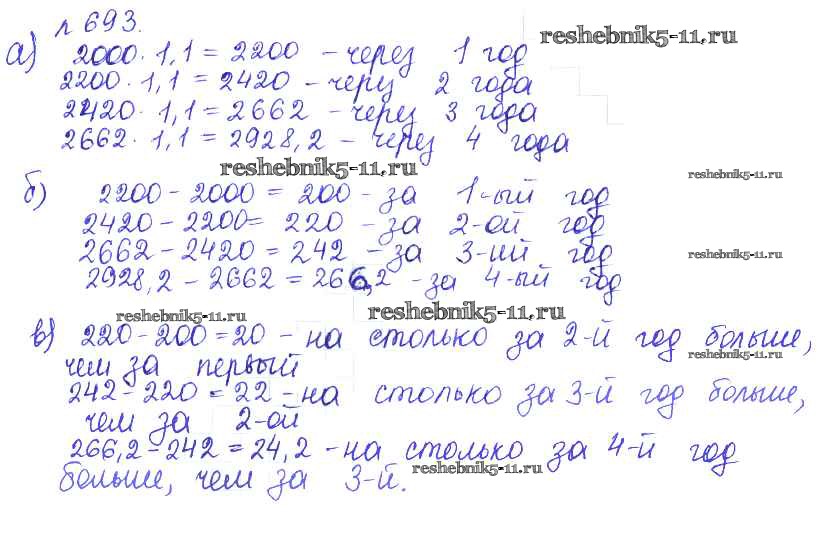 № 693.
reshebnik5-11.ru
а) 2000 · 1,1 = 2200 – через 1 год
2200 · 1,1 = 2420 – через 2 года
2420 · 1,1 = 2662 – через 3 года
2662 · 1,1 = 2928,2 – через 4 года
reshebnik5-11.ru
reshebnik5-11.ru
б) 2200 – 2000 = 200 – за 1-ый год
2420 – 2200 = 220 – за 2-ой год
2662 – 2420 = 242 – за 3-ий год
reshebnik5-11.ru
2928,2 – 2662 = 266,2 – за 4-ый год
reshebnik5-11.ru
reshebnik5-11.ru
в) 220 – 200 = 20 – на столько за 2-й год больше,
reshebnik5-11.ru
чем за первый
242 – 220 = 22 – на столько за 3-й год больше,
чем за 2-ой
266,2 – 242 = 24,2 – на столько за 4-й год
reshebnik5-11.ru
больше, чем за 3-й.